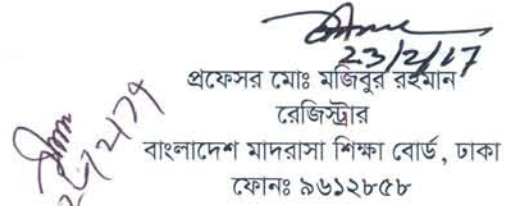 23/2/17
প্রফেসর মোঃ মজিবুর রহমান
রেজিস্ট্রার
বাংলাদেশ মাদরাসা শিক্ষা বোর্ড, ঢাকা
ফোনঃ ৯৬১২৮৫৮